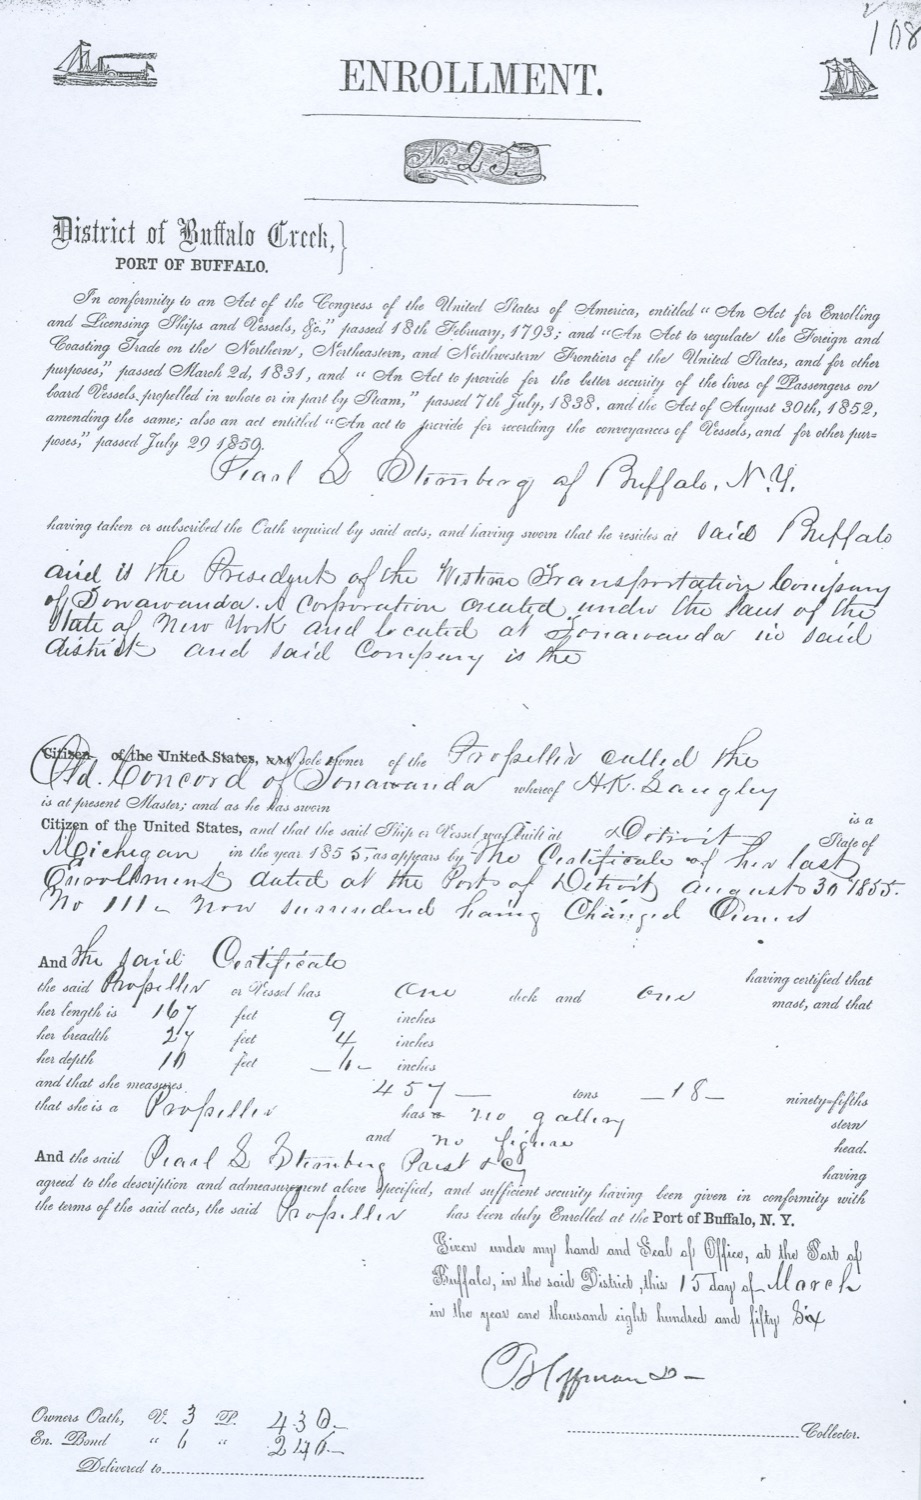 108
ENROLLMENT.
No. 25.
District of Buffalo Creek,
PORT OF BUFFALO.
In conformity to an Act of the Congress of the United States of America, entitled "An Act for Enrolling
and Licensing Ships and Vessels, &c," passed 18th February, 1793; and "An Act to regulate the Foreign and
Coasting Trade on the Northern, Northeastern, and Northwestern Frontiers of the United States, and for other
purposes," passed March 2d, 1831, and "An Act to provide for the better security of the lives of Passengers on
board Vessels, propelled in whole or in part by Steam," passed 7th July, 1838, and the Act of August 30th, 1852,
amending the same; also an act entitled "An act to provide for recording the conveyances of Vessels, and for other pur=
poses," passed July 29 1850.
Pearl L Sternberg of Buffalo, N.Y.
having taken or subscribed the Oath required by said acts, and having sworn that he resides at said Buffalo
and is the President of the Western Transportation Company
of Tonawanda. A Corporation created under the laws of the
State of New York and located at Tonawanda in said
district and said Company is the
Citizen of the United States, sole owner of the Propeller called the
Concord of Tonawanda whereof A.K. Langley
is at present Master; and as he has sworn is a
Citizen of the United States, and that the said Ship or Vessel was built at Detroit State of
Michigan in the year 1855, as appears by The Certificate of her last
Enrollment dated at the Port of Detroit August 30 1855.
No 111 - Now surrendered having Changed Owners
And the said Certificate having certified that
the said Propeller or Vessel has One deck and one mast, and that
her length is 167 feet 9 inches
her breadth 27 feet 4 inches
her depth 10 feet inches
and that she measures 457 tons 18 ninety=fifths
that she is a Propeller has a no gallery stern
and no figure head.
And the said Pearl L Sternberg Prest &c having
agreed to the description and admeasurement above specified, and sufficient security having been given in conformity with
the terms of the said acts, the said Propeller has been duly Enrolled at the Port of Buffalo, N. Y.
Given under my hand and Seal of Office, at the Port of
Buffalo, in the said District, this 15 day of March
in the year one thousand eight hundred and fifty Six
Collector.
Owners Oath, V. 3 P. 430
En. Bond " 6 " 246
Delivered to